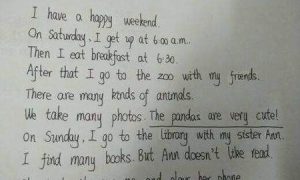 I have a happy weekend.
On Saturday, I get up at 6:00 a.m..
Then I eat breakfast at 6:30.
After that I go to the zoo with my friends.
There are many kinds of animals.
We take many photos. The pandas are very cute!
On Sunday, I go to the library with my sister Ann.
I find many books. But Ann doesn't like read.
and play her phone